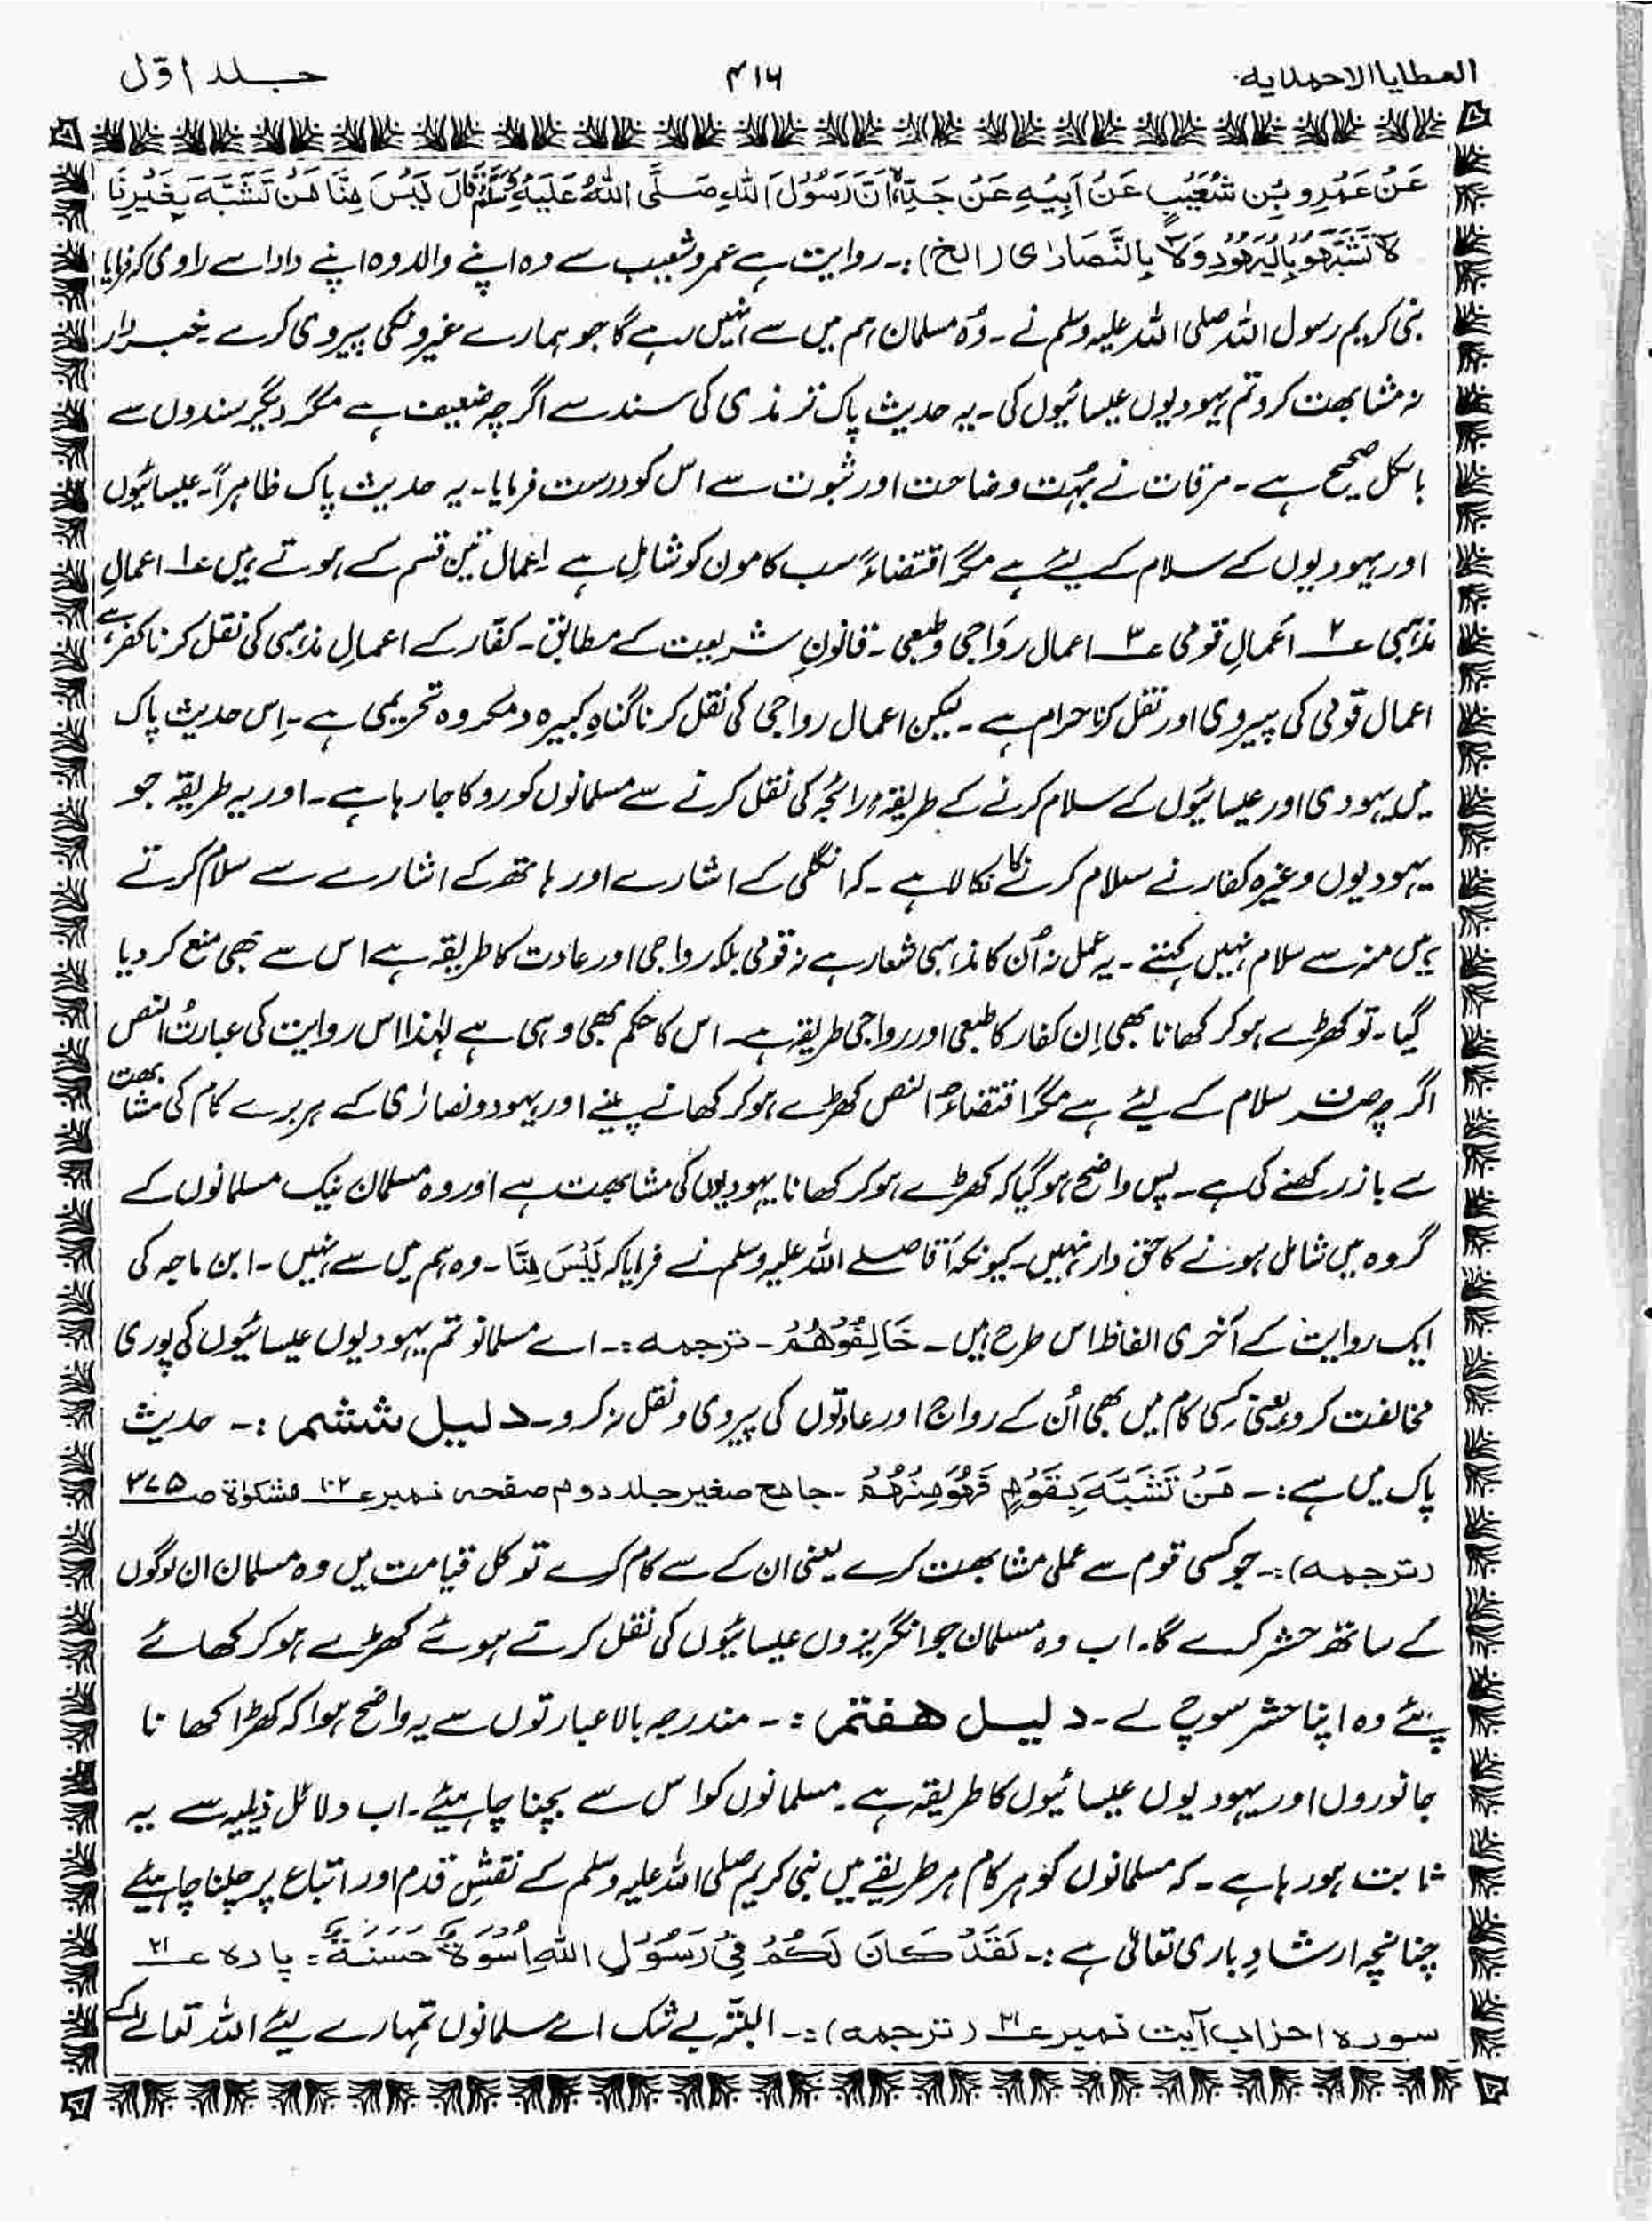 العطایا الاحمدیه
۴۱۶
جلد اوّل
عَنْ عَمْرِو بْنِ شُعَيْبٍ عَنْ اَبِيْهِ عَنْ جَدِّهٖ اَنَّ رَسُوْلَ اللهِ صَلَّى اللهُ عَلَيْهِ وَسَلَّمَ قَالَ لَيْسَ مِنَّا مَنْ تَشَبَّهَ بِغَيْرِنَا
لَا تَشَبَّهُوْ بِالْيَهُوْدِ وَلَا بِالنَّصَارٰى (الخ) :۔ روایت ہے عمرو شعیب سے وہ اپنے والد وہ اپنے دادا سے راوی کہ فرمایا
نبی کریم رسول اللہ صلی اللہ علیہ وسلم نے ۔ وُہ مسلمان ہم میں سے نہیں رہے گا جو ہمارے غیروں کی پیروی کرے ۔ خبردار
نہ مشابھت کرو تم یہودیوں عیسائیوں کی ۔ یہ حدیث پاک ترمذی کی سند سے اگرچہ ضعیف ہے مگر دیگر سندوں سے
بالکل صحیح ہے ۔ مرقات نے بہُت وضاحت اور ثبوت سے اس کو درست فرمایا ۔ یہ حدیث پاک ظاہراً ۔ عیسائیوں
اور یہودیوں کے سلام کے لیئے ہے مگر اقتضاءً سب کاموں کو شامل ہے ۔ اعمال تین قسم کے ہوتے ہیں ۱ اعمالِ
مذہبی ۲ اعمالِ قومی ۳ اعمال رواجی وطبعی ۔ قانونِ شریعت کے مطابق ۔ کفّار کے اعمالِ مذہبی کی نقل کرنا کفر ہے
اعمال قومی کی پیروی اور نقل کرنا حرام ہے ۔ لیکن اعمال رواجی کی نقل کرنا گناہِ کبیرہ و مکروہ تحریمی ہے ۔ اِس حدیث پاک
میں یہودی اور عیسائیوں کے سلام کرنے کے طریقۂ رائجہ کی نقل کرنے سے مسلمانوں کو روکا جا رہا ہے ۔ اور یہ طریقہ جو
یہودیوں وغیرہ کفار نے سلام کرنے کا نکالا ہے ۔ کہ انگلی کے اشارے اور ہاتھ کے اشارے سے سلام کرتے
ہیں منہ سے سلام نہیں کہتے ۔ یہ عمل نہ اُن کا مذہبی شعار ہے نہ قومی بلکہ رواجی اور عادت کا طریقہ ہے اس سے بھی منع کر دیا
گیا ۔ تو کھڑے ہو کر کھانا بھی اِن کفار کا طبعی اور رواجی طریقہ ہے ۔ اس کا حکم بھی وہی ہے لہٰذا اس روایت کی عبارتُ النص
اگرچہ صرف سلام کے لیئے ہے مگر اقتضاءُ النص کھڑے ہو کر کھانے پینے اور یہود و نصارٰی کے ہر برے کام کی مشابھت
سے باز رکھنے کی ہے ۔ پس واضح ہو گیا کہ کھڑے ہو کر کھانا یہودیوں کی مشابھت ہے اور وہ مسلمان نیک مسلمانوں کے
گروہ میں شامل ہونے کا حق دار نہیں ۔ کیونکہ آقا صلے اللہ علیہ وسلم نے فرمایا کہ لَيْسَ مِنَّا ۔ وہ ہم میں سے نہیں ۔ ابن ماجہ کی
ایک روایت کے آخری الفاظ اس طرح ہیں ۔ خَالِفُوْهُمْ ۔ ترجمہ :۔ اے مسلمانو تم یہودیوں عیسائیوں کی پوری
مخالفت کرو یعنی کسی کام میں بھی اُن کے رواج اور عادتوں کی پیروی و نقل نہ کرو ۔ دلیل ششم :۔ حدیث
پاک میں ہے :۔ مَنْ تَشَبَّهَ بِقَوْمٍ فَهُوَ مِنْهُمْ ۔ جامع صغیر جلد دوم صفحہ نمبر ۱۰۲ مشکوٰۃ ص ۳۷۵
(ترجمہ) :۔ جو کسی قوم سے عملی مشابھت کرے یعنی ان کے سے کام کرے تو کل قیامت میں وہ مسلمان ان لوگوں
کے ساتھ حشر کرے گا ۔ اب وہ مسلمان جو انگریزوں عیسائیوں کی نقل کرتے ہوئے کھڑے ہو کر کھائے
پیئے وہ اپنا حشر سوچ لے ۔ دلیل ہفتم :۔ مندرجہ بالا عبارتوں سے یہ واضح ہوا کہ کھڑا کھانا
جانوروں اور یہودیوں عیسائیوں کا طریقہ ہے ۔ مسلمانوں کو اس سے بچنا چاہیئے ۔ اب دلائل ذیلیہ سے یہ
ثابت ہو رہا ہے ۔ کہ مسلمانوں کو ہر کام ہر طریقے میں نبی کریم صلی اللہ علیہ وسلم کے نقشِ قدم اور اتباع پر چلنا چاہیئے
چنانچہ ارشادِ باری تعالٰی ہے :۔ لَقَدْ كَانَ لَكُمْ فِيْ رَسُوْلِ اللهِ اُسْوَةٌ حَسَنَةٌ : پارہ ۲۱
سورہ احزاب آیت نمبر ۲۱ (ترجمہ) :۔ البتہ بے شک اے مسلمانوں تمہارے لیئے اللہ تعالے کے